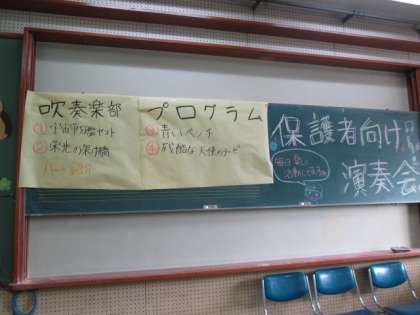 吹奏楽部 プログラム
① 宇宙戦艦ヤマト
② 栄光の架け橋
③ 青いベンチ
④ 残酷な天使のテーゼ
保護者向け
演奏会
毎日楽しく